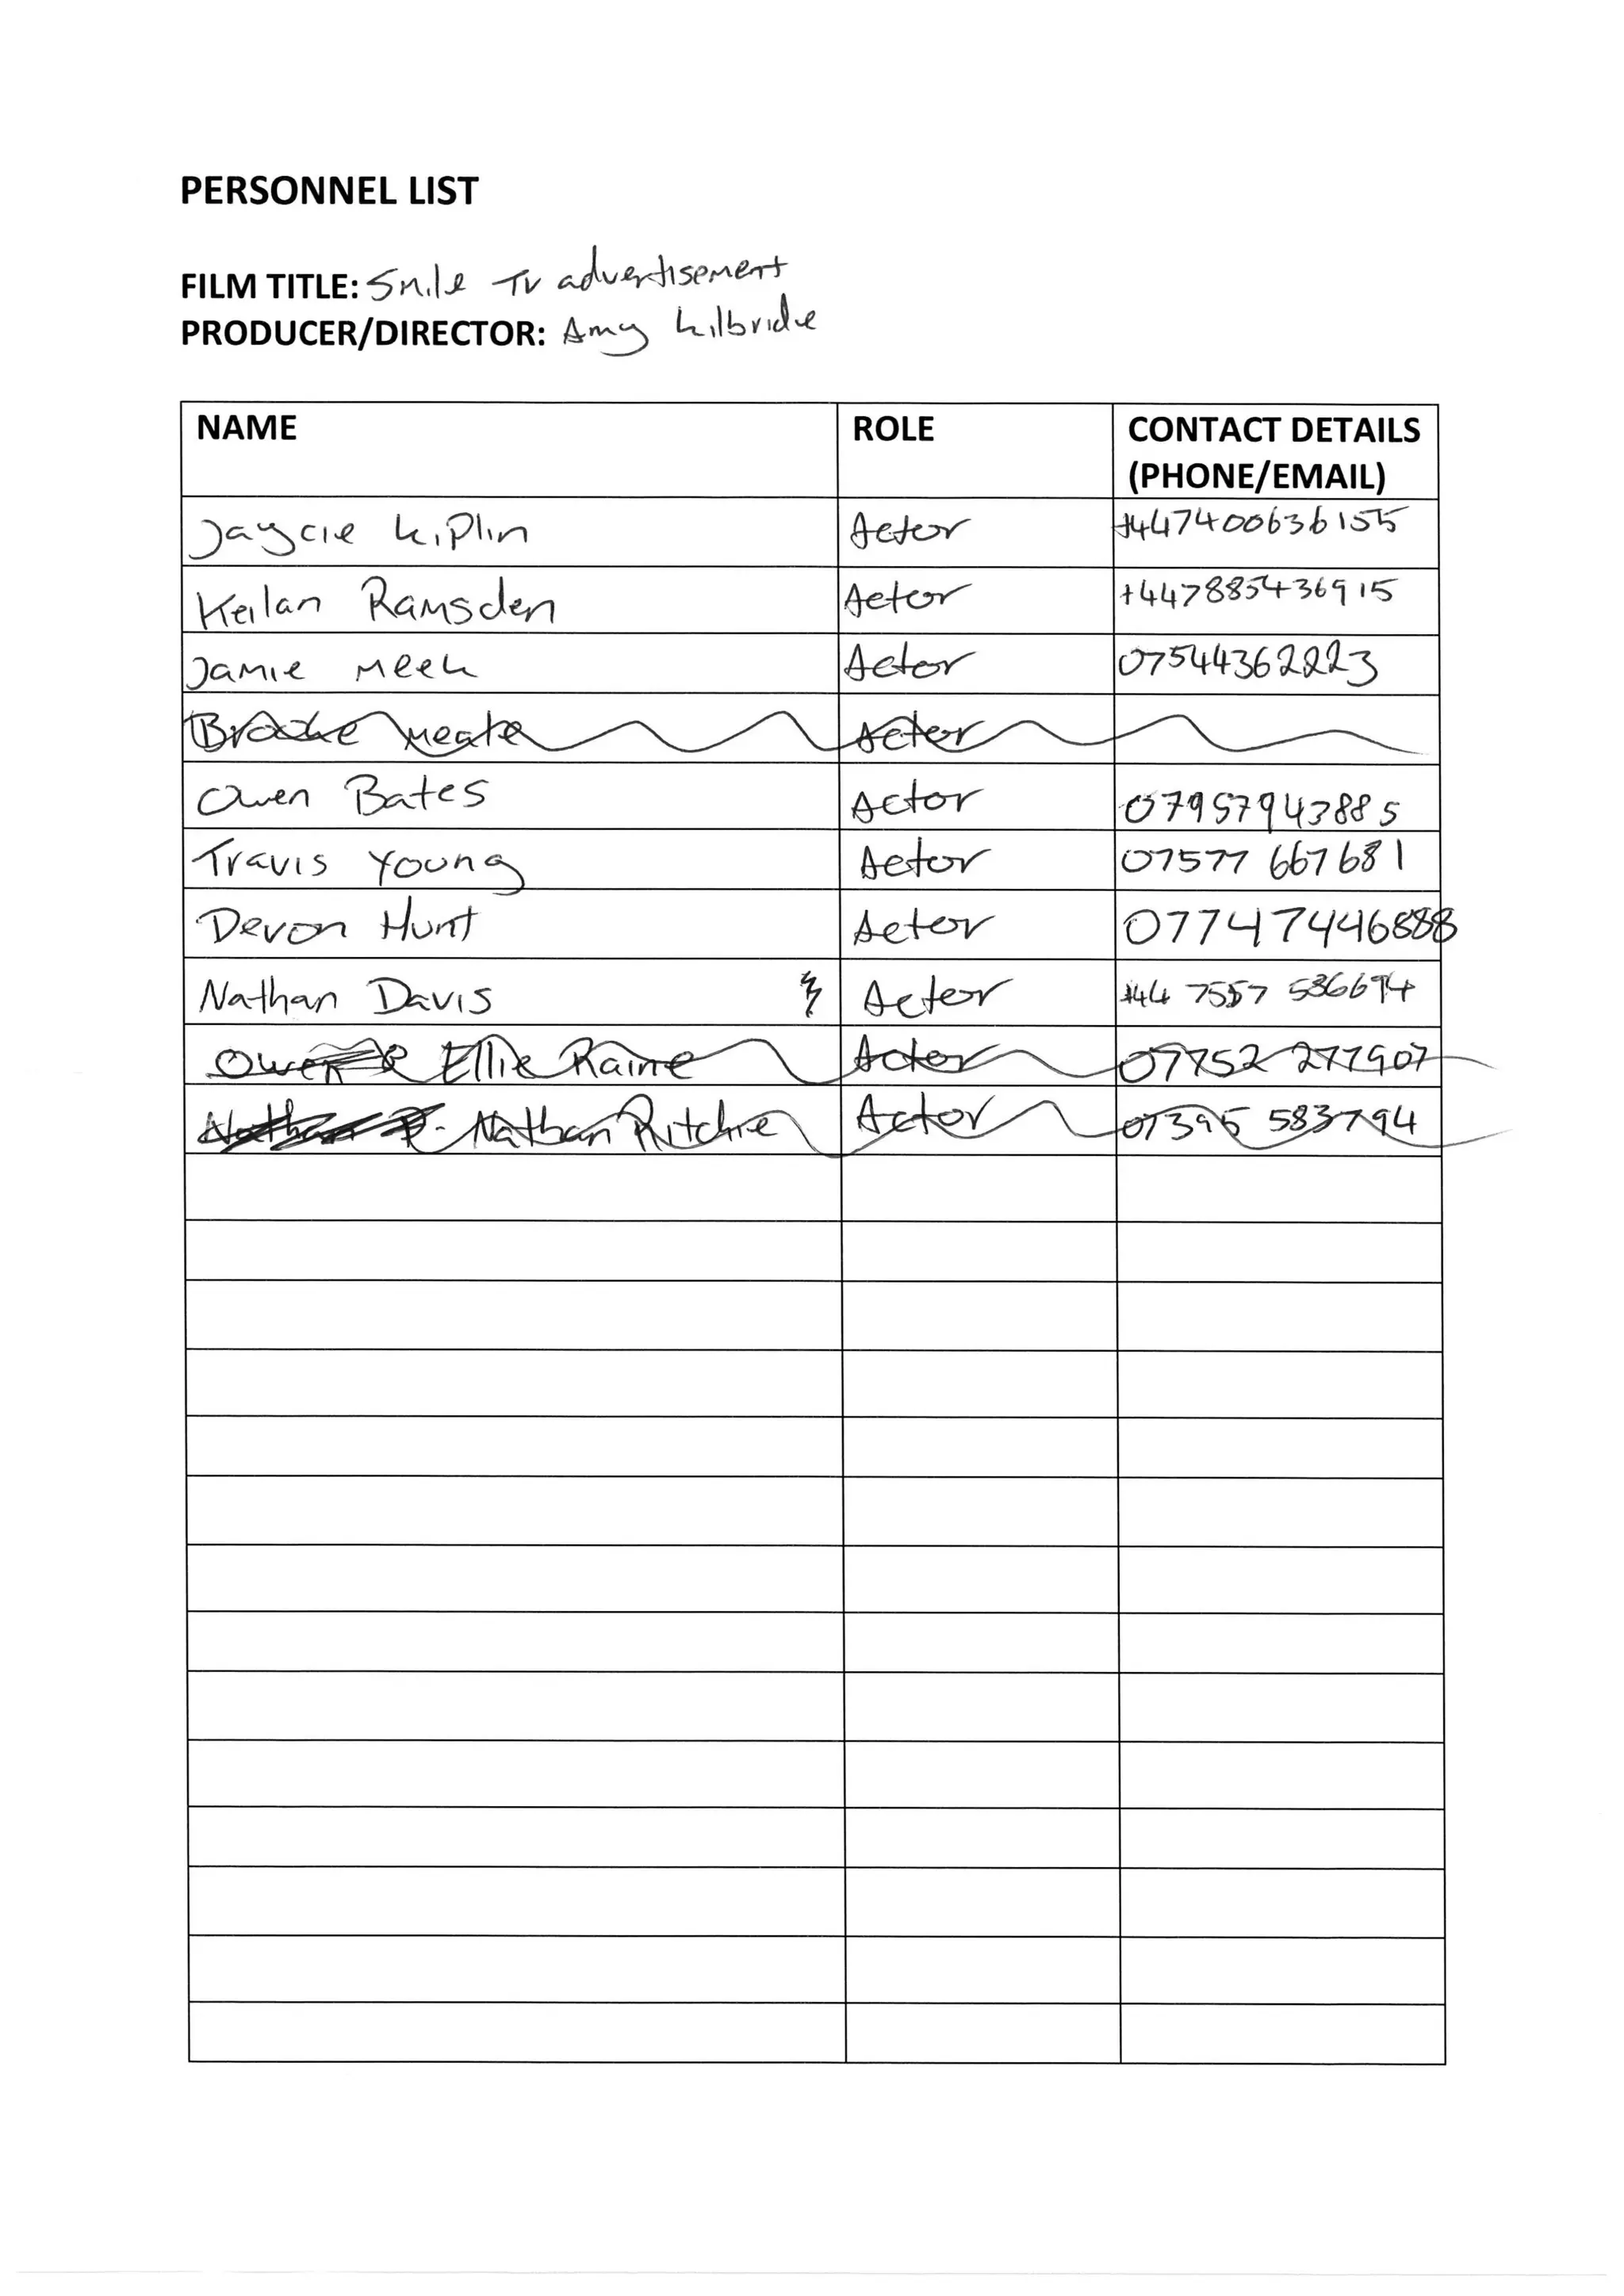 PERSONNEL LIST
FILM TITLE: Smile TV advertisement
PRODUCER/DIRECTOR: Amy Kilbride
NAME ROLE CONTACT DETAILS
(PHONE/EMAIL)
Jaycie Kiplin Actor +447400636155
Keilan Ramsden Actor +447885436915
Jamie Meek Actor 07544362223
Brooke Actor
Owen Bates Actor 07957943885
Travis Young Actor 07577 667681
Devon Hunt Actor 07747446888
Nathan Davis Actor +44 7557 536694
Owen Ellie Raine Actor 07752 277907
Nathan R. Nathan Ritchie Actor 07395 583794